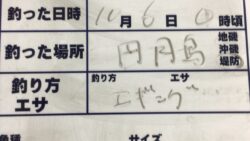 釣った日時 10月6日 時頃
釣った場所 円月島 地磯 沖磯 堤防
釣り方 エサ 釣り方 エサ
エギング
魚種 サイズ